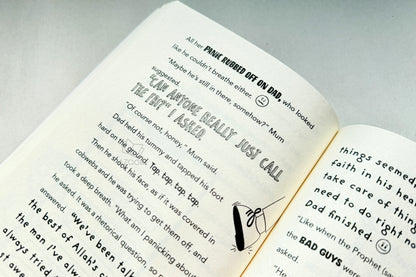 All her PANIC RUBBED OFF ON DAD, who looked
like he couldn't breathe either.
"Maybe he's still in there, somehow?" Mum
suggested.
"CAN ANYONE REALLY JUST CALL
THE FBI?" I ASKED.
"Of course not, honey." Mum said.
Dad held his tummy and tapped his foot
hard on the ground, tip, tap, tap, tap.
Then he shook his face, as if it was covered in
cobwebs and he was trying to get them off, and
took a deep breath. "What am I panicking about?"
he asked. It was a rhetorical question, so
answered.
"We've been
the best of Allah's
the man I've alwa
always tried
things seemed
faith in his hea
take care of thi
need to do right
Dad finished.
"Like when the Prophet (saw
the BAD GUYS
asked.
"He